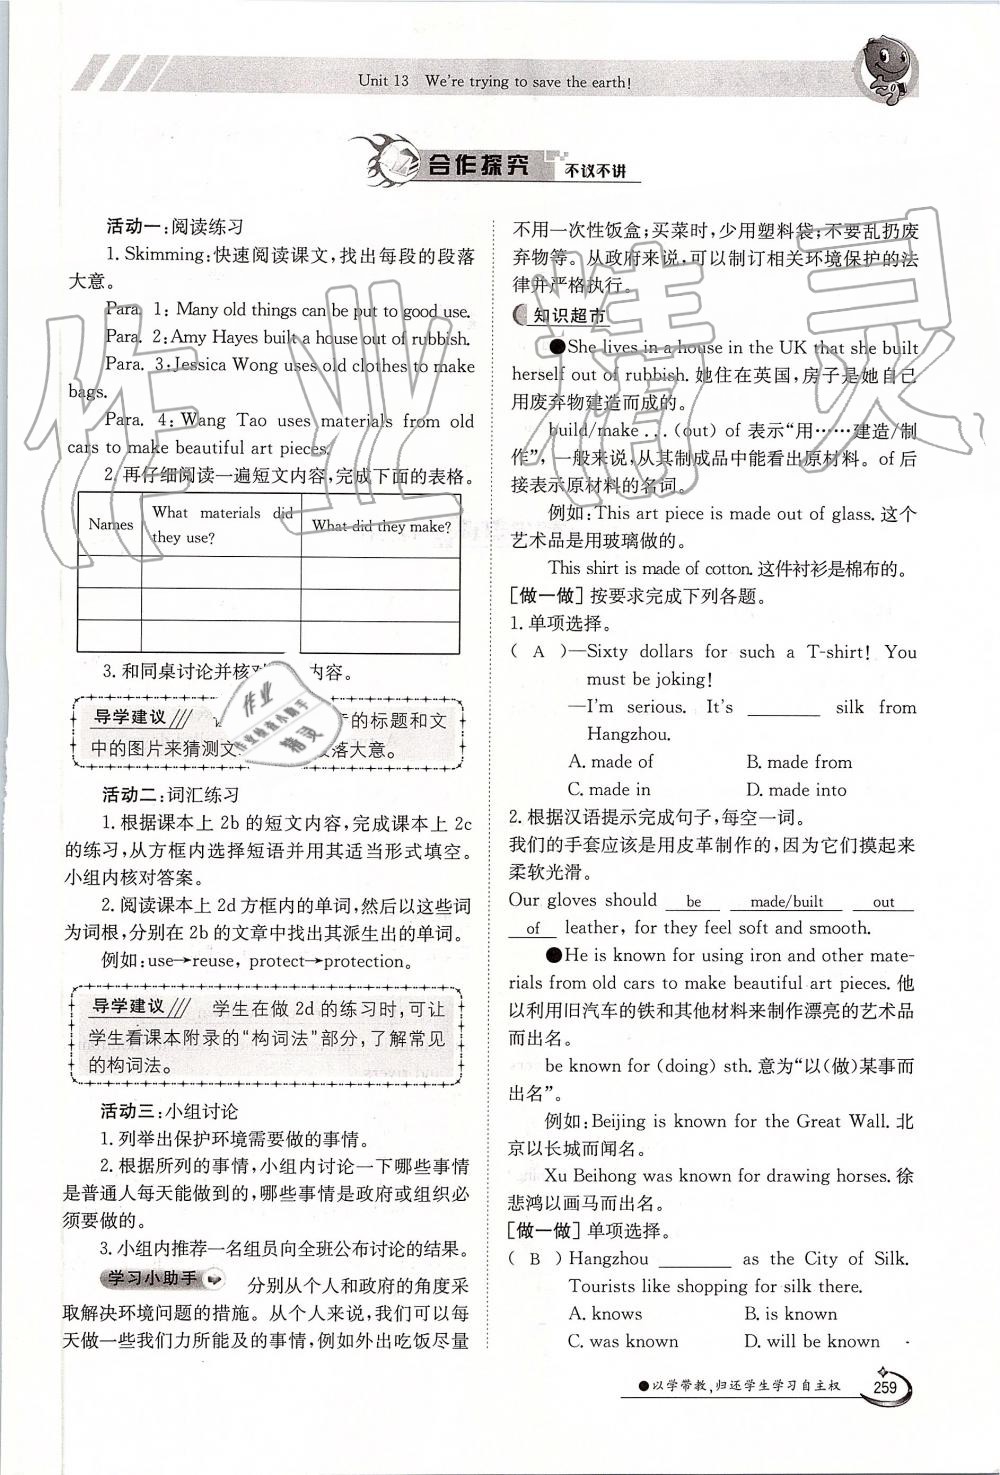 Unit 13 We're trying to save the earth!
合作探究 不议不讲
活动一:阅读练习
1. Skimming:快速阅读课文,找出每段的段落
大意。
Para. 1: Many old things can be put to good use.
Para. 2:Amy Hayes built a house out of rubbish.
Para. 3:Jessica Wong uses old clothes to make
bags.
Para. 4: Wang Tao uses materials from old
cars to make beautiful art pieces.
2. 再仔细阅读一遍短文内容,完成下面的表格。
Names
What materials did
they use?
What did they make?
3. 和同桌讨论并核对 内容。
导学建议 的标题和文
中的图片来猜测文 段落大意。
活动二:词汇练习
1. 根据课本上 2b 的短文内容,完成课本上 2c
的练习,从方框内选择短语并用其适当形式填空。
小组内核对答案。
2. 阅读课本上 2d 方框内的单词,然后以这些词
为词根,分别在 2b 的文章中找出其派生出的单词。
例如:use→reuse, protect→protection。
导学建议 学生在做 2d 的练习时,可让
学生看课本附录的“构词法”部分,了解常见
的构词法。
活动三:小组讨论
1. 列举出保护环境需要做的事情。
2. 根据所列的事情,小组内讨论一下哪些事情
是普通人每天能做到的,哪些事情是政府或组织必
须要做的。
3. 小组内推荐一名组员向全班公布讨论的结果。
学习小助手 分别从个人和政府的角度采
取解决环境问题的措施。从个人来说,我们可以每
天做一些我们力所能及的事情,例如外出吃饭尽量
不用一次性饭盒;买菜时,少用塑料袋;不要乱扔废
弃物等。从政府来说,可以制订相关环境保护的法
律并严格执行。
知识超市
●She lives in a house in the UK that she built
herself out of rubbish. 她住在英国,房子是她自己
用废弃物建造而成的。
build/make...(out) of 表示“用……建造/制
作”,一般来说,从其制成品中能看出原材料。of 后
接表示原材料的名词。
例如:This art piece is made out of glass. 这个
艺术品是用玻璃做的。
This shirt is made of cotton. 这件衬衫是棉布的。
[做一做] 按要求完成下列各题。
1. 单项选择。
( A )—Sixty dollars for such a T-shirt! You
must be joking!
—I'm serious. It's ________ silk from
Hangzhou.
A. made of B. made from
C. made in D. made into
2. 根据汉语提示完成句子,每空一词。
我们的手套应该是用皮革制作的,因为它们摸起来
柔软光滑。
Our gloves should be made/built out
of leather, for they feel soft and smooth.
●He is known for using iron and other mate-
rials from old cars to make beautiful art pieces. 他
以利用旧汽车的铁和其他材料来制作漂亮的艺术品
而出名。
be known for (doing) sth. 意为“以(做)某事而
出名”。
例如:Beijing is known for the Great Wall. 北
京以长城而闻名。
Xu Beihong was known for drawing horses. 徐
悲鸿以画马而出名。
[做一做] 单项选择。
( B ) Hangzhou ________ as the City of Silk.
Tourists like shopping for silk there.
A. knows B. is known
C. was known D. will be known
●以学带教,归还学生学习自主权
259
作业精灵
作业
作业检查小助手
精灵